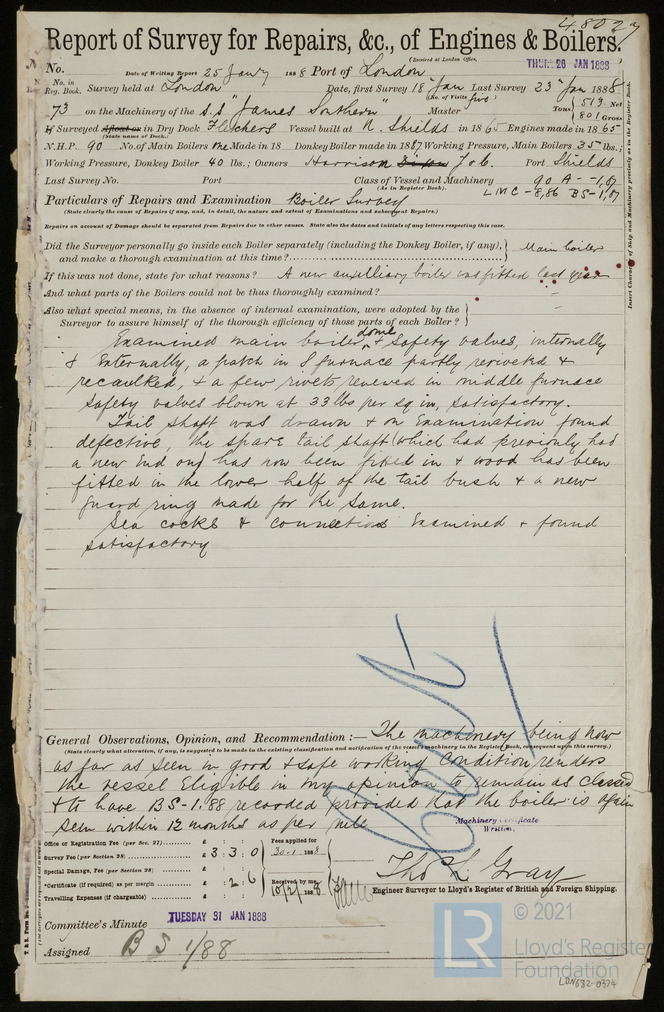 48027
Report of Survey for Repairs, &c., of Engines & Boilers.
(Received at London Office,
THUR. 26 JAN 1888
No. Date of Writing Report 25 Jany 1888 Port of London
No. in Reg. Book. Survey held at London Date, first Survey 18 Jan Last Survey 23rd Jan 1888
(No. of Visits five)
73 on the Machinery of the S.S "James Southern" Master Tons { 513 Net
801 Gross
If Surveyed Afloat or in Dry Dock Fletchers Vessel built at N. Shields in 1865 Engines made in 1865
(State name of Dock.)
N.H.P. 90 No. of Main Boilers one Made in 18 Donkey Boiler made in 1887 Working Pressure, Main Boilers 35 lbs.;
Working Pressure, Donkey Boiler 40 lbs.; Owners Harrison Job. Port Shields
Last Survey No. Port Class of Vessel and Machinery 90 A - -1,87
(As in Register Book). LMC - 8,86 BS - 1,87
Particulars of Repairs and Examination Boiler Survey
(State clearly the cause of Repairs if any, and, in detail, the nature and extent of Examinations and subsequent Repairs.)
Repairs on account of Damage should be separated from Repairs due to other causes. State also the dates and initials of any letters respecting this case.
Did the Surveyor personally go inside each Boiler separately (including the Donkey Boiler, if any), and make a thorough examination at this time? Main boiler
If this was not done, state for what reasons? A new auxilliary boiler was fitted last year
And what parts of the Boilers could not be thus thoroughly examined? –
Also what special means, in the absence of internal examination, were adopted by the Surveyor to assure himself of the thorough efficiency of those parts of each Boiler? –
Examined main boiler, dome & safety valves, internally
& Externally, a patch in S furnace partly reriveted &
recaulked, & a few rivets renewed in middle furnace
safety valves blown at 33 lbs per sq in, satisfactory.
Tail shaft was drawn & on Examination found
defective, the spare tail shaft (which had previously had
a new End on) has now been fitted in & wood has been
fitted in the lower half of the tail bush & a new
guard ring made for the same.
Sea cocks & connections Examined & found
satisfactory
General Observations, Opinion, and Recommendation :— The machinery being now
(State clearly what alteration, if any, is suggested to be made in the existing classification and notification of the vessel's machinery in the Register Book, consequent upon this survey.)
as far as seen in good & safe working condition renders
the vessel Eligible in my opinion to remain as classed
& to have BS - 1.88 recorded provided that the boiler is again
seen within 12 months as per rule
Machinery Certificate
Written.
Office or Registration Fee (per Sec. 27) £ : : Fees applied for
Survey Fee (per Section 28) £ 3 : 3 : 0 30.1 1888
Special Damage, Fee (per Section 28) £ : :
*Certificate (if required) as per margin £ : 2 : 6 Received by me,
Travelling Expenses (if chargeable) £ : : 10/2/1888
Thos L Gray
Engineer Surveyor to Lloyd's Register of British and Foreign Shipping.
Committee's Minute TUESDAY 31 JAN 1888
Assigned BS 1/88
Insert Character of Ship and Machinery precisely as in the Register Book.
LR
© 2021
Lloyd's Register
Foundation
LDN682-0374